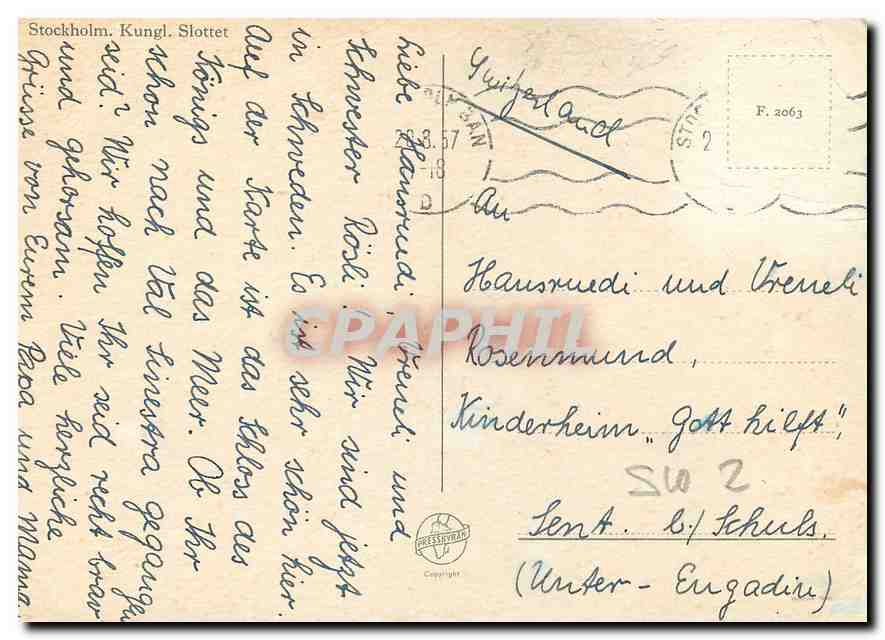 Stockholm. Kungl. Slottet
Liebe Hansruedi, Vreneli und
Schwester Rösli! Wir sind jetzt
in Schweden. Es ist sehr schön hier.
Auf der Karte ist das Schloss des
Königs und das Meer. Ob Ihr
schon nach Val Sinestra gegangen
seid? Wir hoffen Ihr seid recht brav
und gehorsam. Viele herzliche
Grüsse von Eurem Papa und Mama.
Switzerland
F. 2063
BAN
8.57
-18
D
STO
2
An
Hansruedi und Vreneli
Rosenmund,
Kinderheim „Gott hilft",
SW 2
Sent. b/Schuls.
(Unter-Engadin)
PRESSBYRÅN
Copyright
CPAPHIL